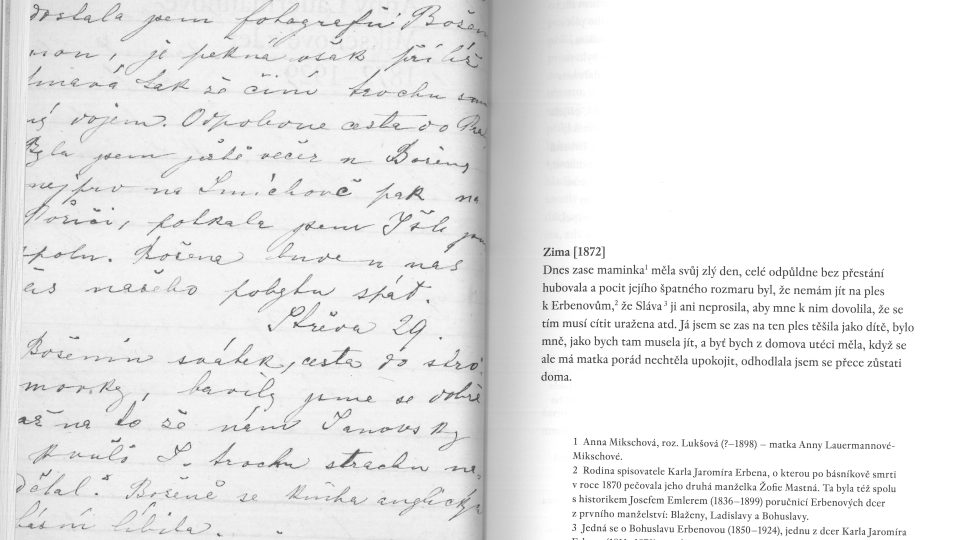 dostala jsem fotografii Božen
je pěkná však příliš
tmavá tak že činí trochu
dojem. Odpoledne cesta do
Byla jsem ještě večer u Boženy
nejprv na Smíchově pak na
Poříčí, potkala jsem
spolu. Božena bude u nás
čas našeho pobytu spát.
Středa 29.
Boženin svátek, cesta do stro-
movky, bavily jsme se dobře
až na to že nám Janovský
kvůli J. trochu strachu na-
dělal. Boženě se kniha anglických
básní líbila.
Zima [1872]
Dnes zase maminka¹ měla svůj zlý den, celé odpůldne bez přestání
hubovala a pocit jejího špatného rozmaru byl, že nemám jít na ples
k Erbenovům,² že Sláva³ ji ani neprosila, aby mne k nim dovolila, že se
tím musí cítit uražena atd. Já jsem se zas na ten ples těšila jako dítě, bylo
mně, jako bych tam musela jít, a byť bych z domova utéci měla, když se
ale má matka porád nechtěla upokojit, odhodlala jsem se přece zůstati
doma.
1 Anna Mikschová, roz. Lukšová (?–1898) – matka Anny Lauermannové-
Mikschové.
2 Rodina spisovatele Karla Jaromíra Erbena, o kterou po básníkově smrti
v roce 1870 pečovala jeho druhá manželka Žofie Mastná. Ta byla též spolu
s historikem Josefem Emlerem (1836–1899) poručnicí Erbenových dcer
z prvního manželství: Blaženy, Ladislavy a Bohuslavy.
3 Jedná se o Bohuslavu Erbenovou (1850–1924), jednu z dcer Karla Jaromíra